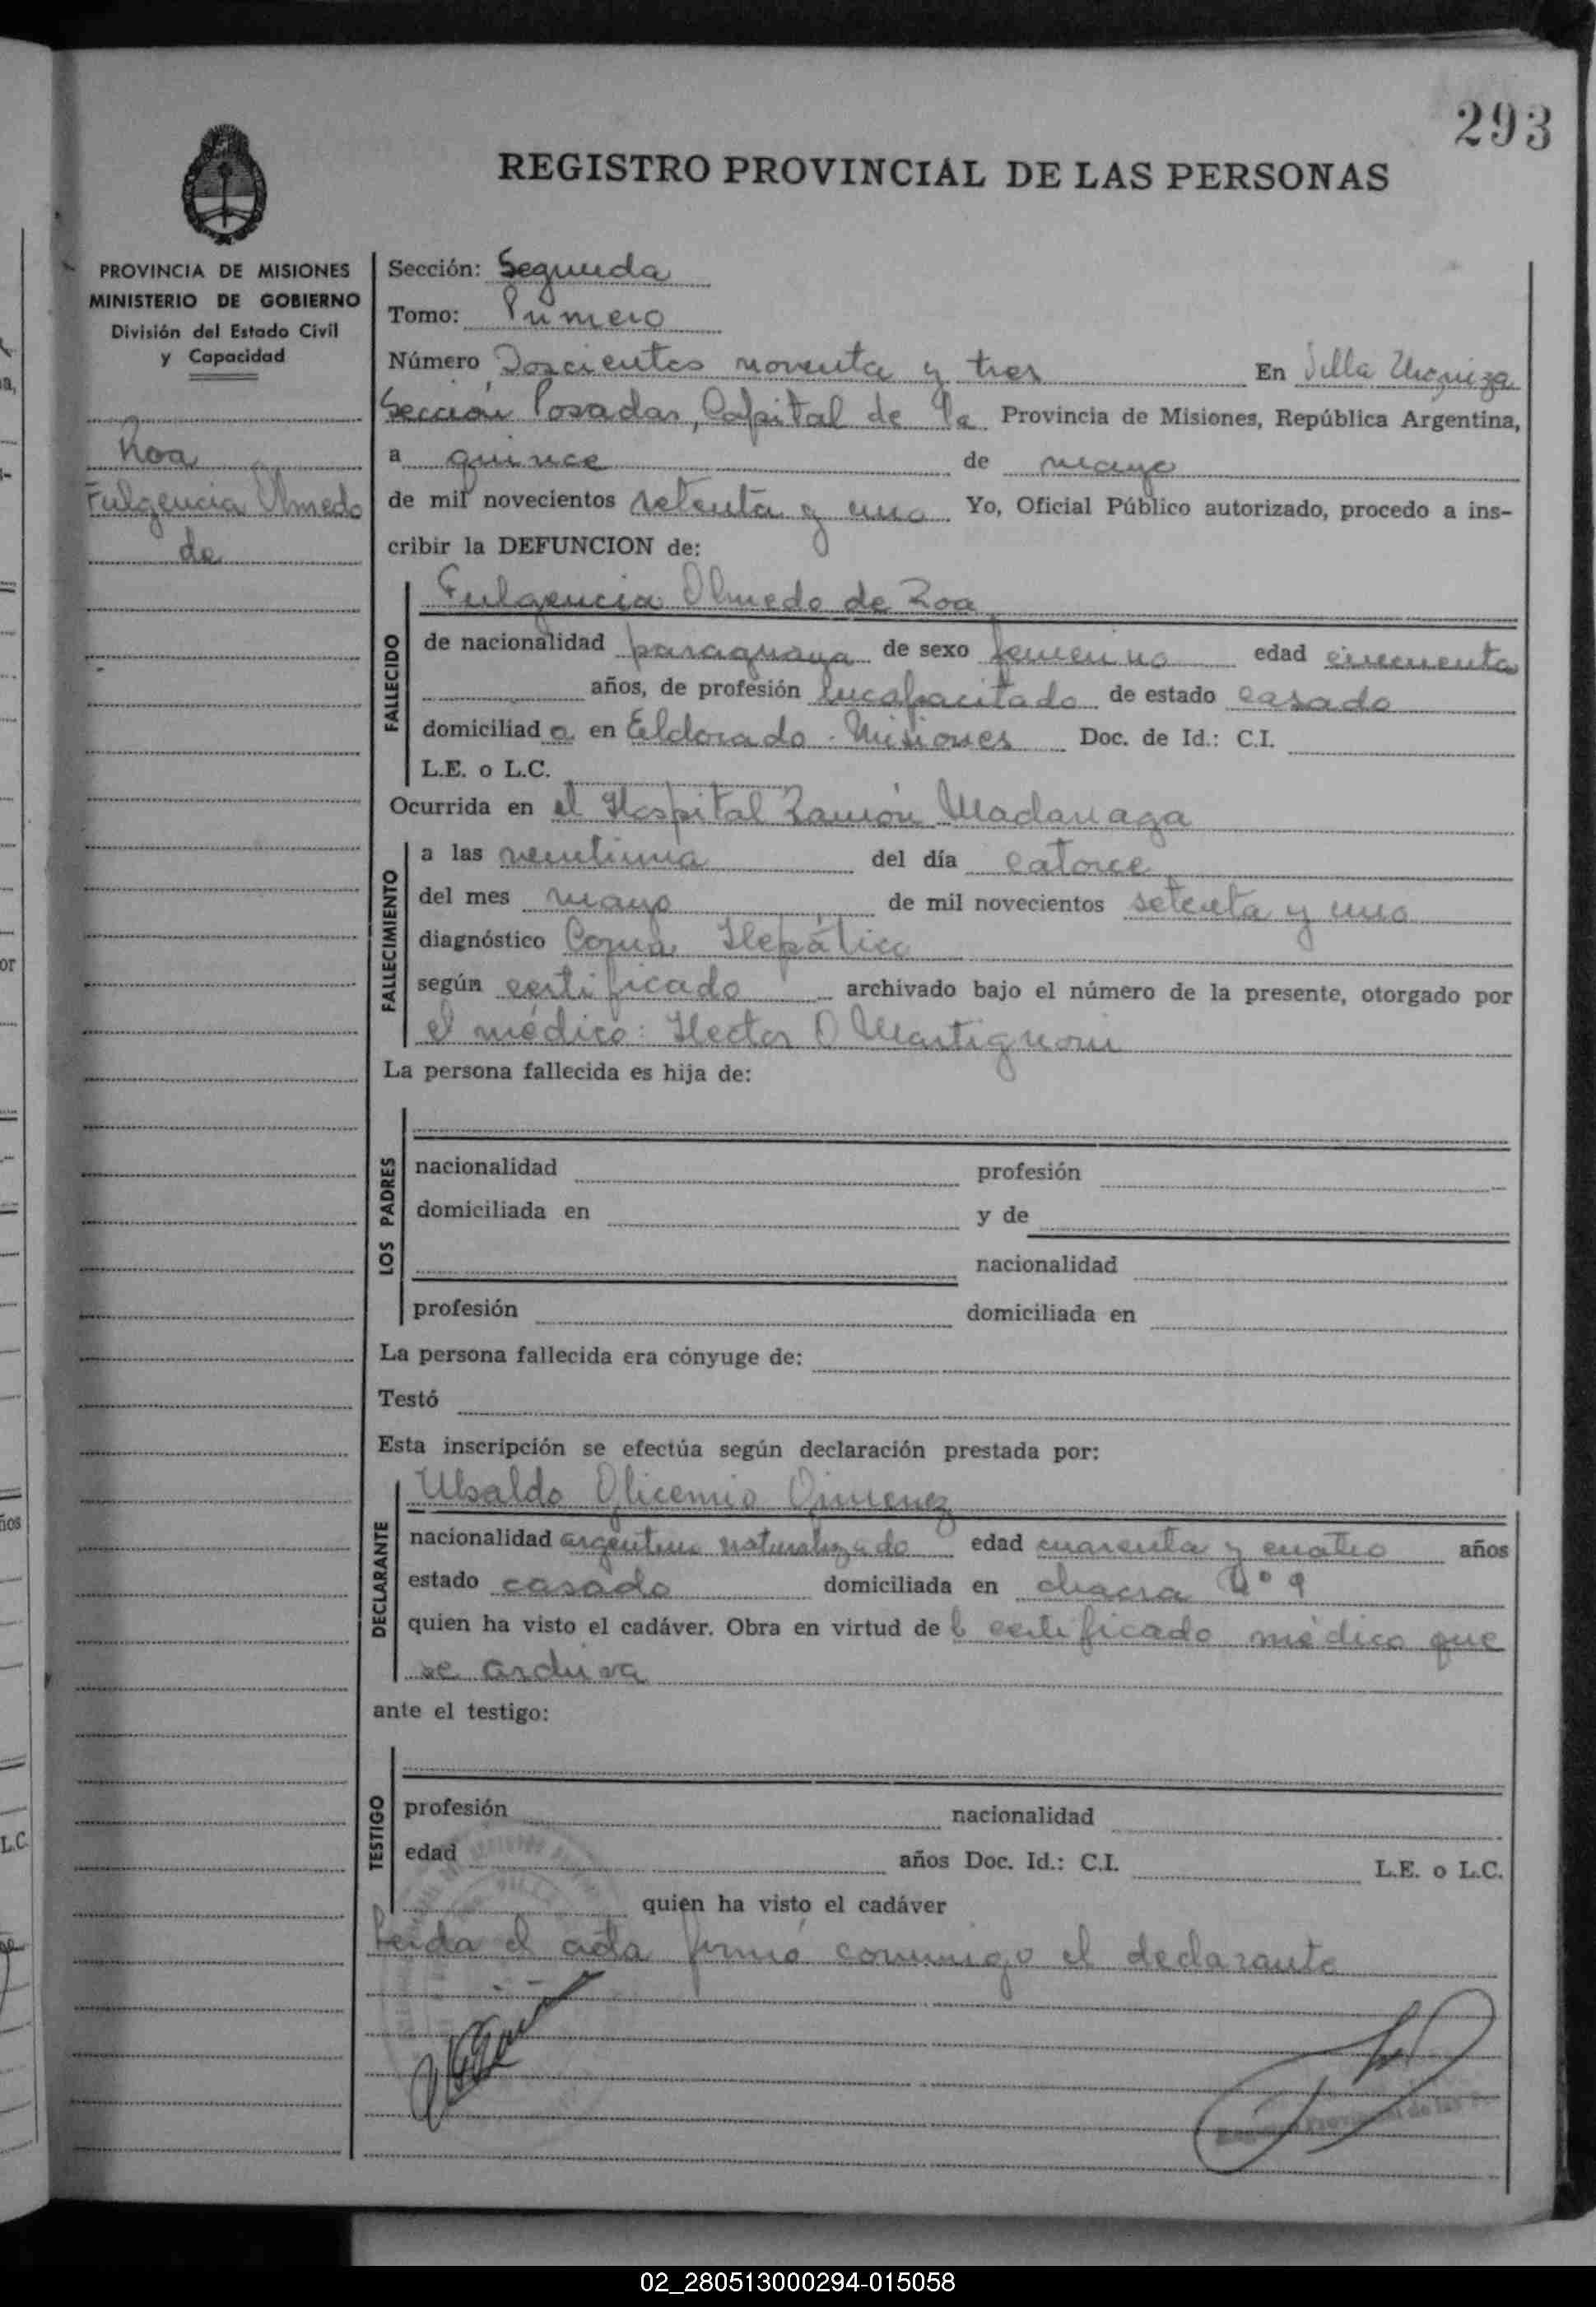 293
REGISTRO PROVINCIAL DE LAS PERSONAS
PROVINCIA DE MISIONES
MINISTERIO DE GOBIERNO
División del Estado Civil
y Capacidad
Roa
Fulgencia Olmedo
de
Sección: Segunda
Tomo: Primero
Número Doscientos noventa y tres En Villa Urquiza
Sección Posadas, Capital de la Provincia de Misiones, República Argentina,
a quince de mayo
de mil novecientos setenta y uno Yo, Oficial Público autorizado, procedo a ins-
cribir la DEFUNCION de:
FALLECIDO
Fulgencia Olmedo de Roa
de nacionalidad paraguaya de sexo femenino edad cincuenta
años, de profesión incapacitado de estado casado
domiciliad a en Eldorado - Misiones Doc. de Id.: C.I.
L.E. o L.C.
Ocurrida en el Hospital Ramón Madariaga
FALLECIMIENTO
a las veintiuna del día catorce
del mes mayo de mil novecientos setenta y uno
diagnóstico Coma Hepático
según certificado archivado bajo el número de la presente, otorgado por
el médico: Hector O Martignoni
La persona fallecida es hija de:
LOS PADRES
nacionalidad profesión
domiciliada en y de
nacionalidad
profesión domiciliada en
La persona fallecida era cónyuge de:
Testó
Esta inscripción se efectúa según declaración prestada por:
DECLARANTE
Ubaldo Glicemio Gimenez
nacionalidad argentino naturalizado edad cuarenta y cuatro años
estado casado domiciliada en chacra Nº 9
quien ha visto el cadáver. Obra en virtud de l certificado médico que
se archiva
ante el testigo:
TESTIGO
profesión nacionalidad
edad años Doc. Id.: C.I. L.E. o L.C.
quien ha visto el cadáver
Leida el acta firmó conmigo el declarante
02_280513000294-015058